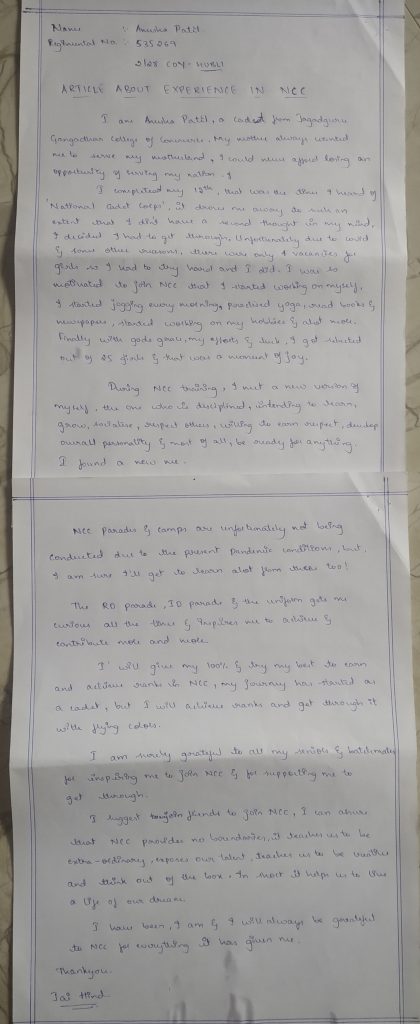 Name : Anusha Patil
Regimental No. : 535269
2/28 COY - HUBLI
ARTICLE ABOUT EXPERIENCE IN NCC
I am Anusha Patil, a cadet from Jagadguru
Gangadhar College of Commerce. My mother always wanted
me to serve my motherland, I could never afford losing an
opportunity of serving my nation.
I completed my 12th, that was the time I heard of
'National Cadet Corps', it drove me away to such an
extent that I din't have a second thought in my mind,
I decided I had to get through. Unfortunately due to covid
& some other reasons, there were only 4 vacancies for
girls so I had to try hard and I did. I was so
motivated to join NCC that I started working on myself,
I started jogging every morning, practised yoga, read books &
newspapers, started working on my hobbies & alot more.
Finally with gods grace, my efforts & luck, I got selected
out of 25 girls & that was a moment of joy.
During NCC training, I met a new version of
myself, the one who is disciplined, intending to learn,
grow, socialise, respect others, willing to earn respect, develop
overall personality & most of all, be ready for anything.
I found a new me.
NCC Parades & camps are unfortunately not being
conducted due to the present Pandemic conditions, but,
I am sure I'll get to learn alot from these too!
The RD parade, ID parade & the uniform gets me
curious all the time & inspires me to achieve &
contribute more and more.
I will give my 100% & try my best to earn
and achieve ranks in NCC, my journey has started as
a cadet, but I will achieve ranks and get through it
with flying colors.
I am surely grateful to all my seniors & batchmates
for inspiring me to join NCC & for supporting me to
get through.
I suggest friends to join NCC, I can assure
that NCC provides no boundaries, it teaches us to be
extra-ordinary, exposes our talent, teaches us to be
and think out of the box. In short it helps us to live
a life of our dreams.
I have been, I am & I will always be grateful
to NCC for everything it has given me.
Thankyou.
Jai Hind